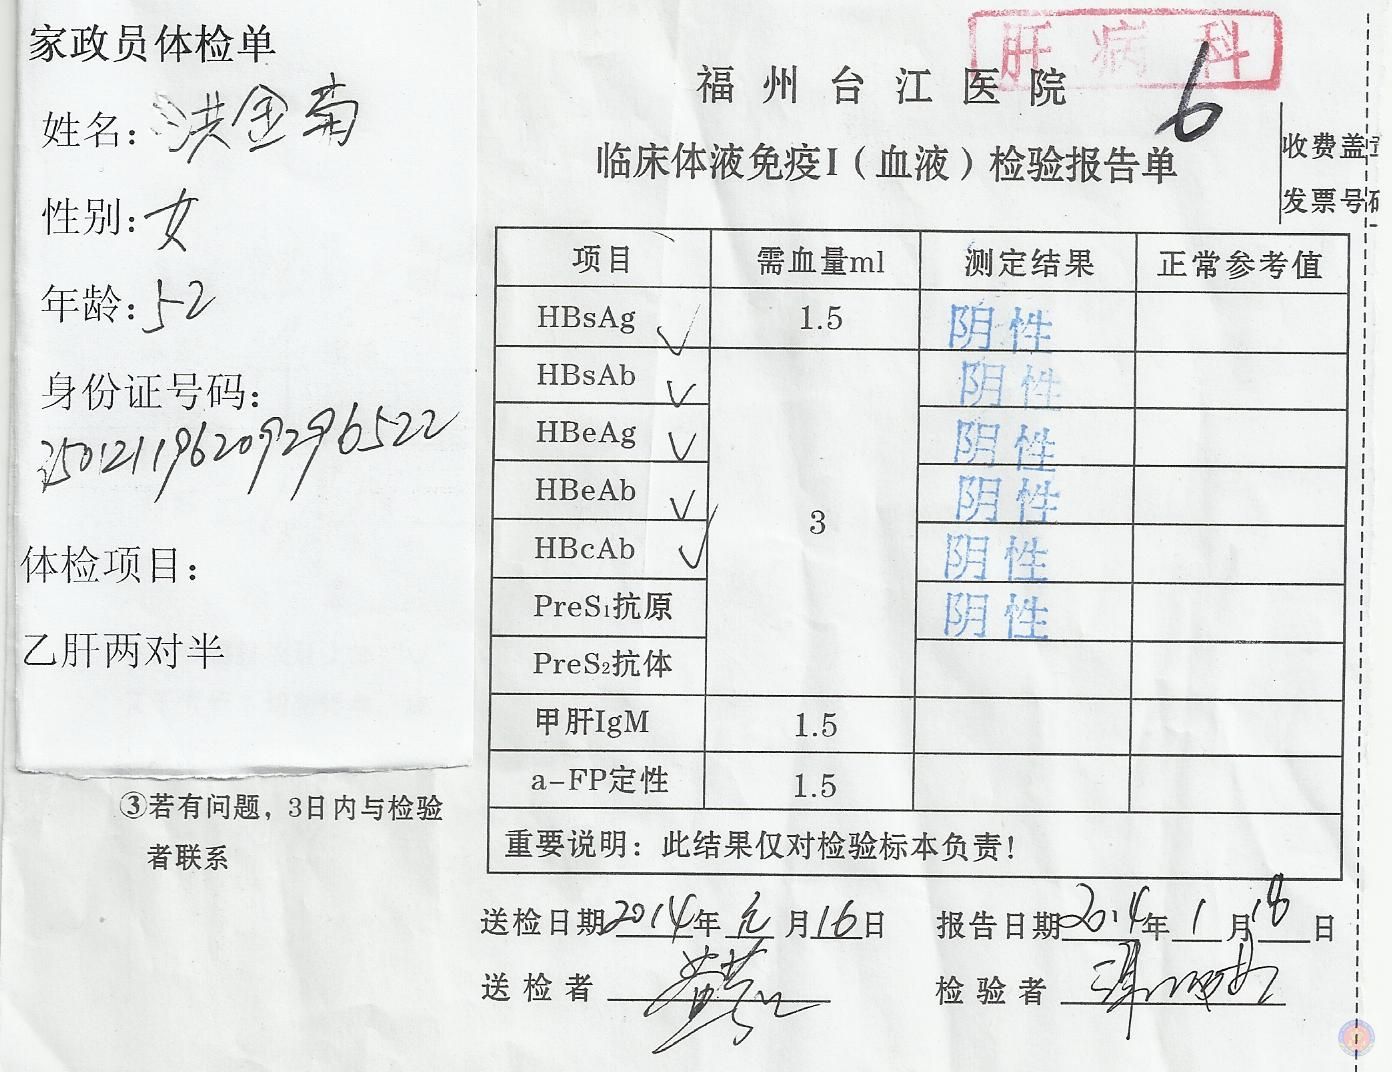 家政员体检单
姓名:洪金菊
性别:女
年龄:52
身份证号码:
350121196209296522
体检项目:
乙肝两对半
③若有问题，3日内与检验
者联系
肝病科
福州台江医院
6
临床体液免疫I（血液）检验报告单
收费盖
发票号码
项目 需血量ml 测定结果 正常参考值
HBsAg ✓ 1.5 阴性
HBsAb ✓ 阴性
HBeAg ✓ 阴性
HBeAb ✓ 3 阴性
HBcAb ✓ 阴性
PreS₁抗原 阴性
PreS₂抗体
甲肝IgM 1.5
a-FP定性 1.5
重要说明：此结果仅对检验标本负责！
送检日期2014年元月16日 报告日期2014年1月18日
送检者 检验者